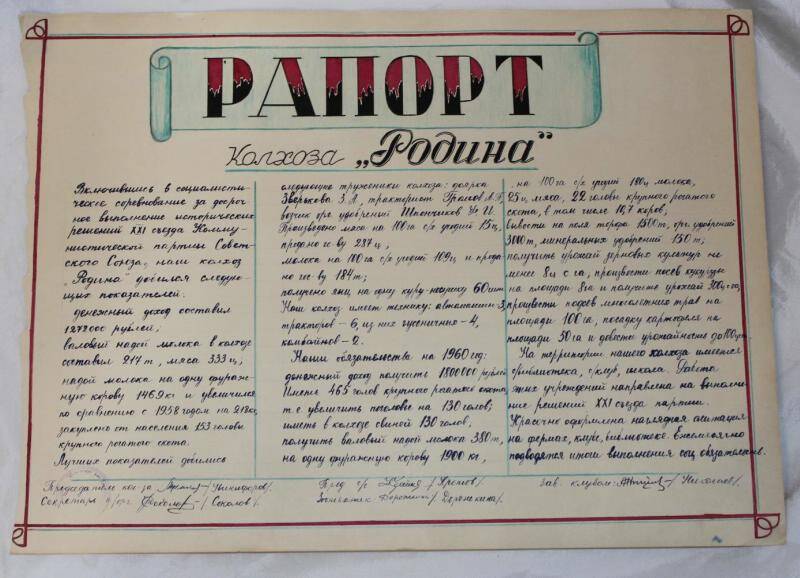 РАПОРТ
Колхоза „Родина"
Включившись в социалисти-
ческое соревнование за досроч
ное выполнение исторических
решений XXI съезда Комму-
нистической партии Совет-
ского Союза, наш колхоз
„Родина" добился следую-
щих показателей:
денежный доход составил
1272000 рублей;
валовый надой молока в колхозе
составил 217 т, мяса 333 ц;
надой молока на одну фураж-
ную корову 1469 кг и увеличился
по сравнению с 1958 годом на 218 кг,
закуплено от населения 153 головы
крупного рогатого скота.
Лучших показателей добились
следующие труженики колхоза: доярка
Зверькова З.А, тракторист
возчик орг. удобрений Шпончиков
Произведено мяса на 100 га с/х угодий 15 ц,
продано гос-ву 287 ц;
молока на 100 га с/х угодий 109 ц и прода-
но гос-ву 184 т;
получено яиц на одну куру-несушку 60 шт.
Наш колхоз имеет технику: автомашин-3,
тракторов - 6, из них гусеничных - 4,
комбайнов - 2.
Наши обязательства на 1960 год:
денежный доход получить 1800000 рублей
Иметь 465 голов крупного рогатого скота,
т.е увеличить поголовье на 130 голов;
иметь в колхозе свиней 130 голов,
получить валовый надой молока 380 т,
на одну фуражную корову 1900 кг,
на 100 га с/х угодий 180 ц молока,
25 ц. мяса, 22 головы крупного рогатого
скота, в том числе 10,7 коров;
вывести на поля торфа 1500 т, орг. удобрений
3000 т, минеральных удобрений 150 т;
получить урожай зерновых культур не
менее 8 ц с га, произвести посев кукурузы
на площади 8 га и получить урожай 300 ц с га,
произвести подсев многолетних трав на
площади 100 га, посадку картофеля на
площади 50 га и довести урожайность до 100 ц с га.
На территории нашего колхоза имеется
библиотека, клуб, школа. Работа
этих учреждений направлена на выполне-
ние решений XXI съезда партии.
Красочно оформлена наглядная агитация
на фермах, клубе, библиотеке. Ежемесячно
подводятся итоги выполнения соц. обязательств.
Председатель кол-за /Никифоров/.
Секретарь п/орг. /Соколов/.
Пред с/с /Хрепков/.
/Дороничина/.
Зав. клубом: /Николаев/.